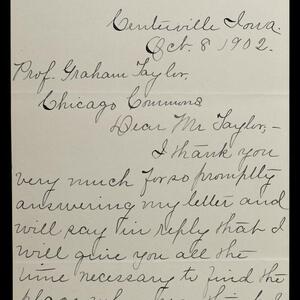 Centerville Iowa.
Oct. 8 1902.
Prof. Graham Taylor,
Chicago Commons
Dear Mr Taylor,-
I thank you
very much for so promptly
answering my letter and
will say in reply that I
will give you all the
time necessary to find the
place